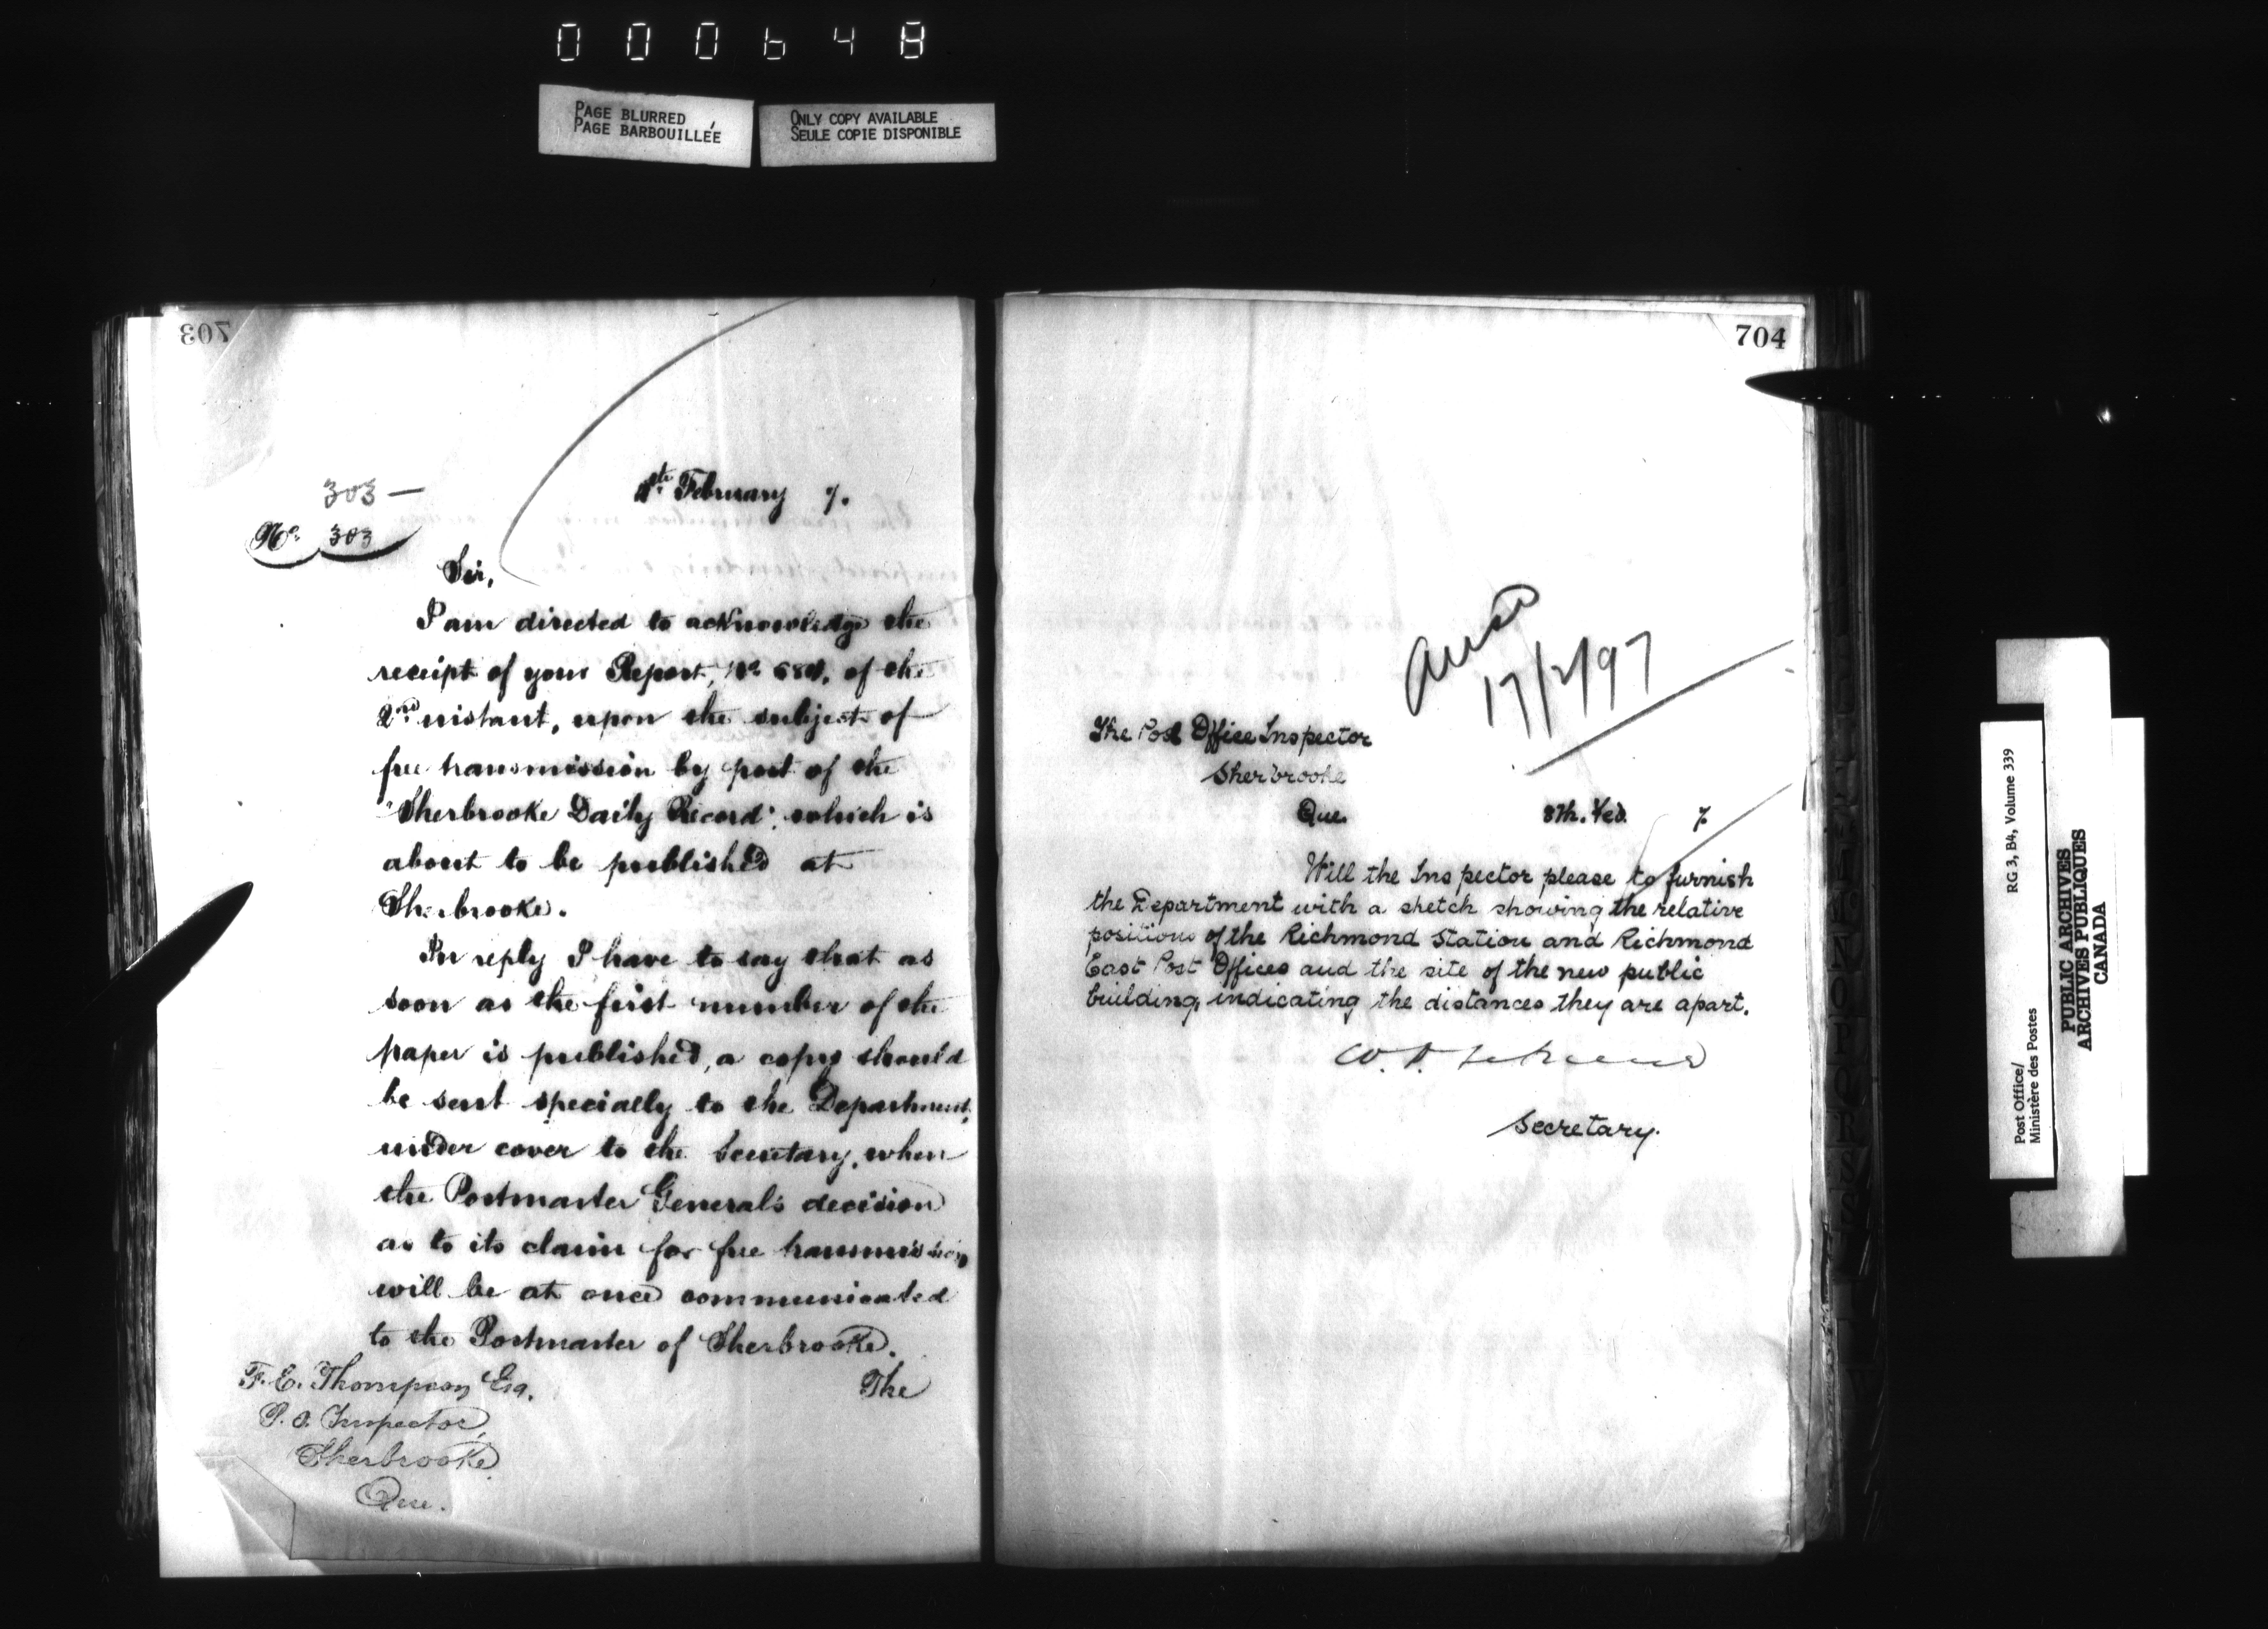 000648
PAGE BLURRED
PAGE BARBOUILLÉE
ONLY COPY AVAILABLE
SEULE COPIE DISPONIBLE
703
303 —
4th February 7.
No. 303
Sir,
I am directed to acknowledge the
receipt of your Report, No. of the
2nd instant, upon the subject of
free transmission by post of the
"Sherbrooke Daily Record", which is
about to be published at
Sherbrooke.
In reply I have to say that as
soon as the first number of the
paper is published, a copy should
be sent specially to the Department,
under cover to the Secretary, when
the Postmaster General's decision
as to its claim for free transmission
will be at once communicated
to the Postmaster of Sherbrooke.
The
F. E. Thompson Esq.
P. O. Inspector,
Sherbrooke
Que.
704
17/2/97
The Post Office Inspector
Sherbrooke
Que.
8th. Feb. 7
Will the Inspector please to furnish
the Department with a sketch showing the relative
positions of the Richmond Station and Richmond
East Post Offices and the site of the new public
building, indicating the distances they are apart.
Secretary.
RG 3, B4, Volume 339
Post Office/
Ministère des Postes
PUBLIC ARCHIVES
ARCHIVES PUBLIQUES
CANADA